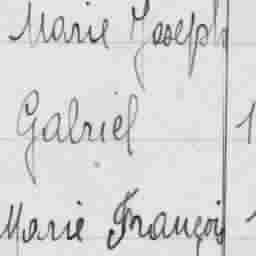 Marie Joseph
Gabriel 1
Marie François